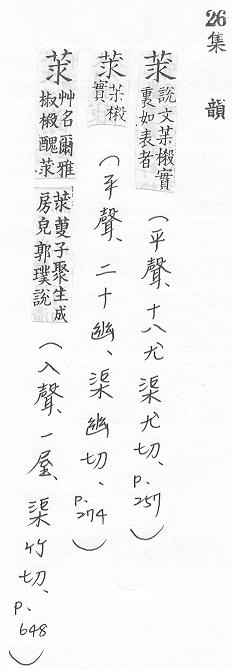 26集 韻
莍 說文茮樧實裏如表者 (平聲、十八尤 渠尤切、p.257)
莍 茮樧實 (平聲、二十幽、渠幽切、p.274)
莍 艸名爾雅椒樧醜莍莍萸子聚生成房皃郭璞說 (入聲、一屋、渠竹切、p.648)